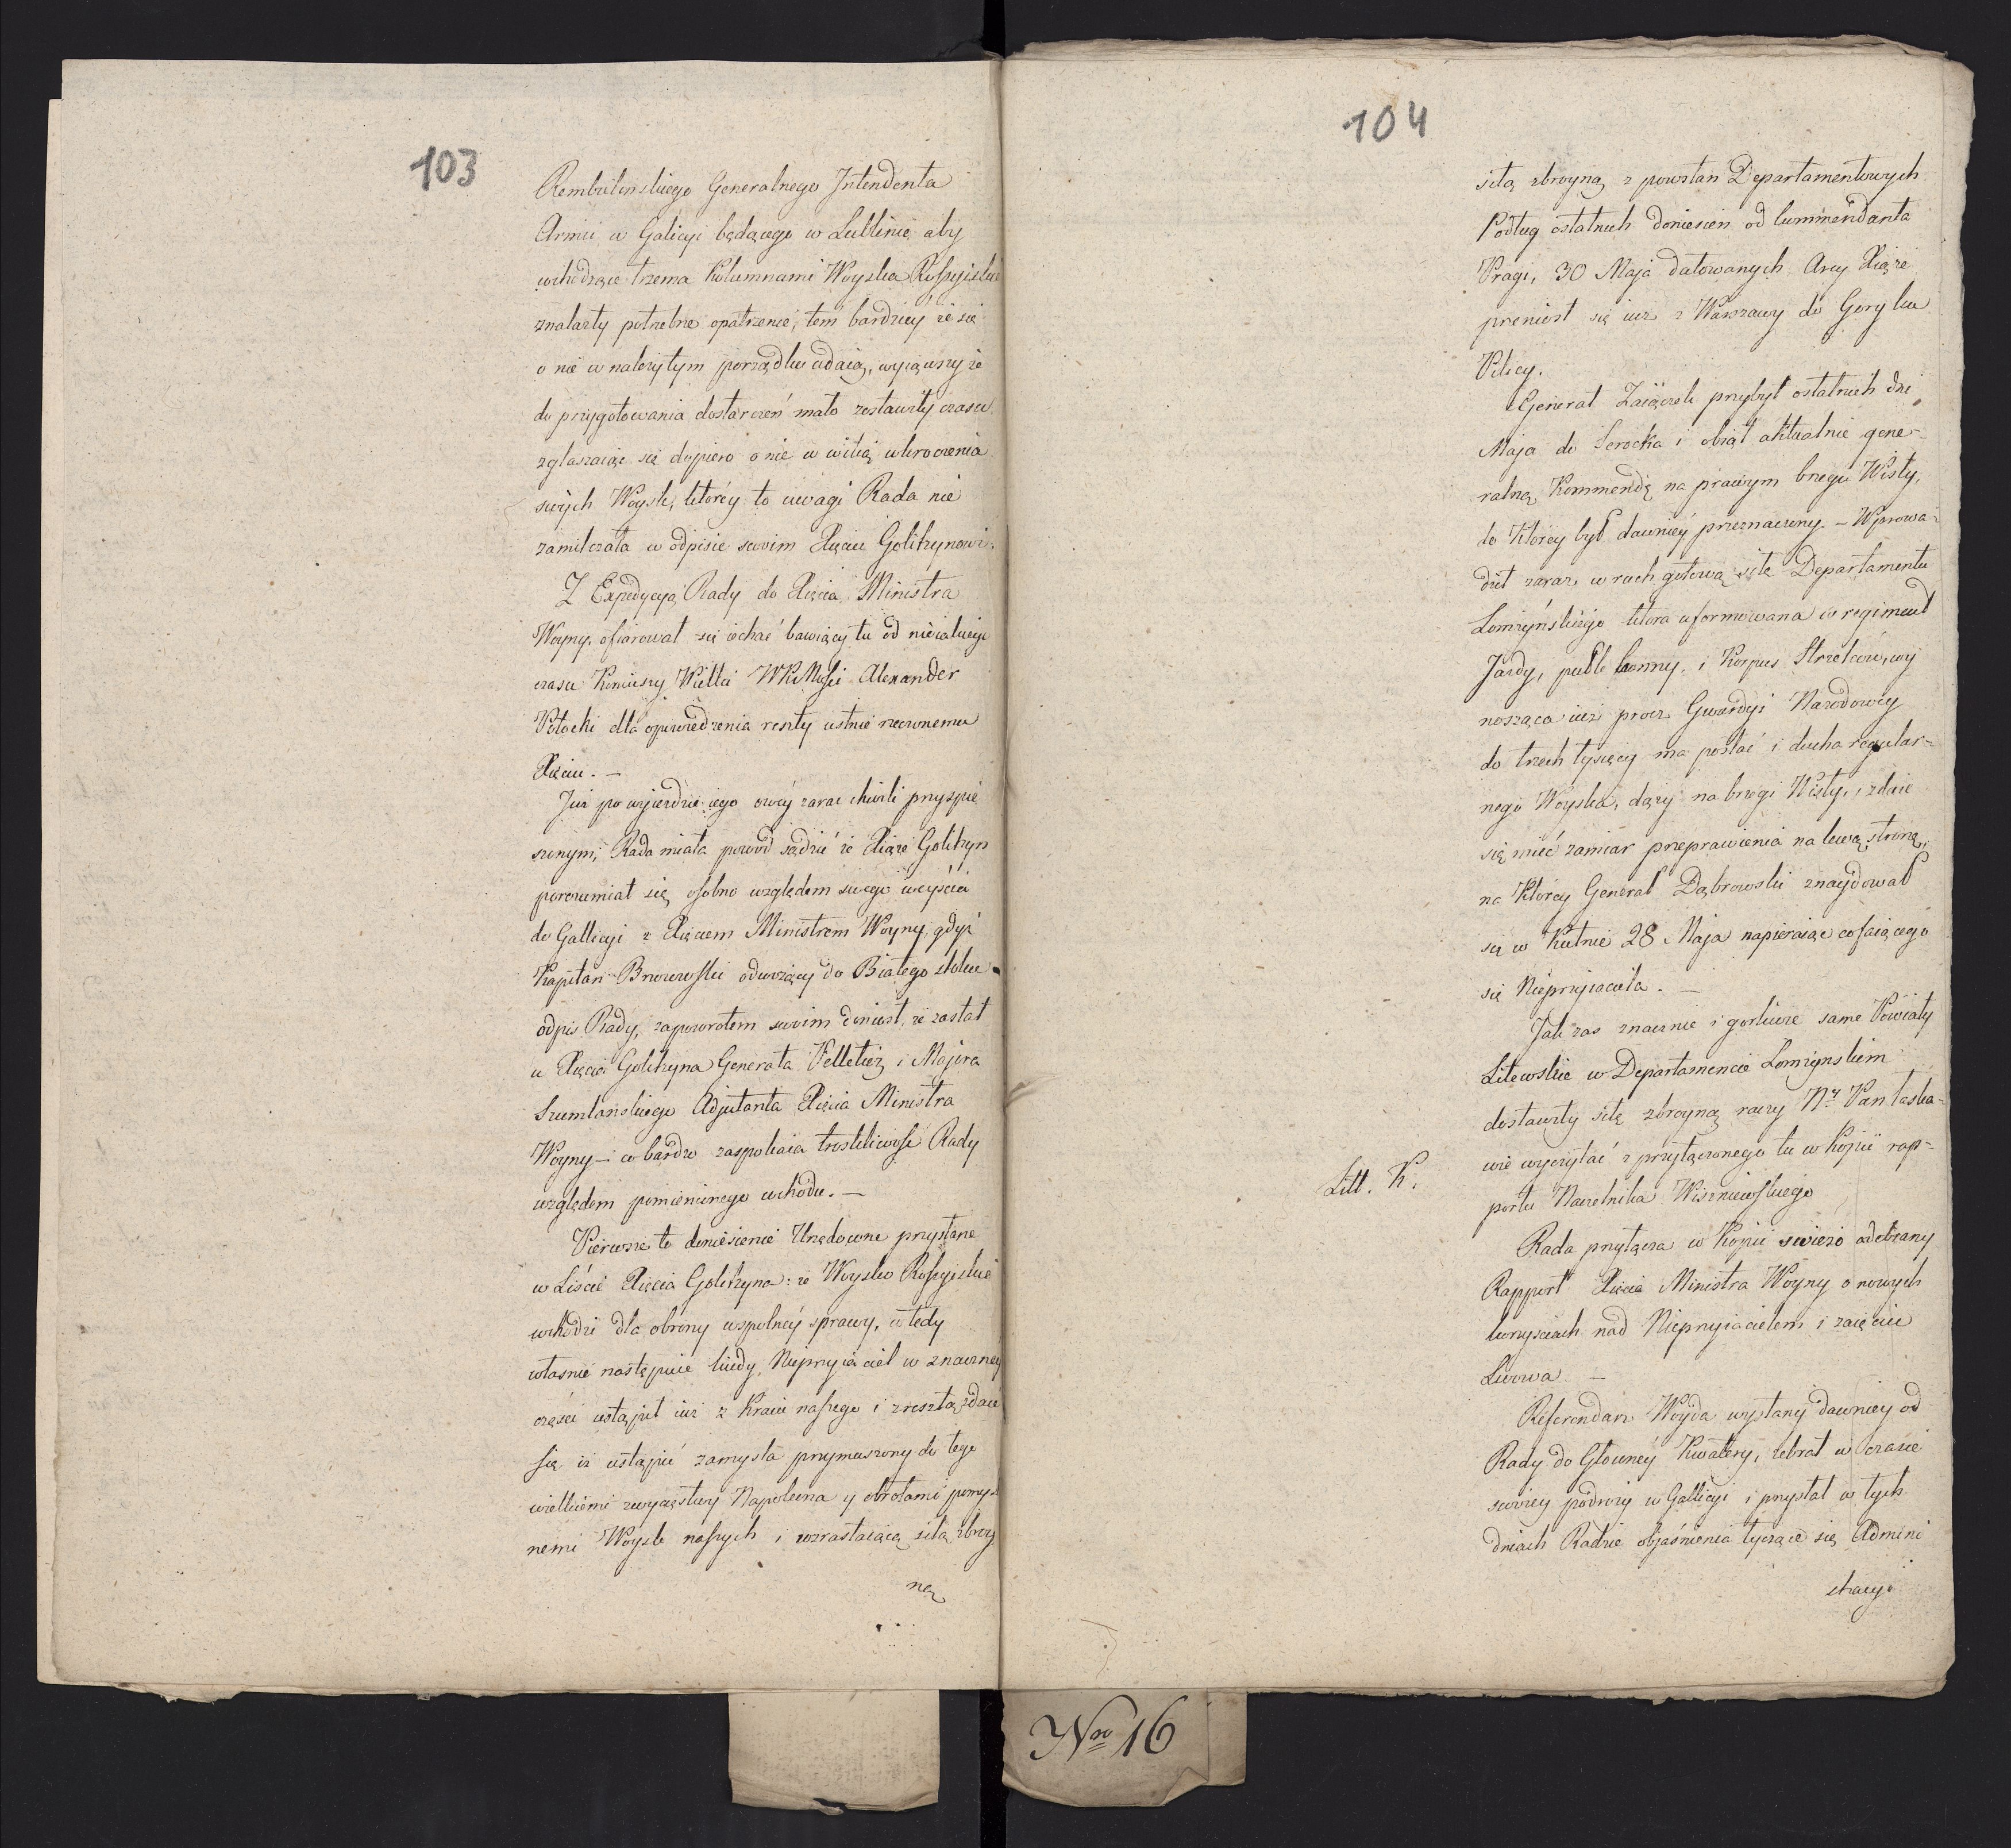 103
Rembielinskiego Generalnego Intendenta
Armii w Galicyi będącego w Lublinie aby
wchodzące trzema Kolumnami Woyska Rossyiskie
znalazły potrzebne opatrzenie, tem bardziey że się
o nie w należytym porządku udaią, wyiąwszy że
do przygotowania dostarczeń mało zostawiły czasu
zgłaszaiąc się dopiero o nie w wilią wkroczenia
swych Woysk, ktorey to uwagi Rada nie
zamilczała w odpisie swoim Xięciu Golitzynowi.
Z Expedycyą Rady do Xięcia Ministra
Woyny, ofiarował się iechać bawiący tu od nieiakiego
czasu Koniuszy Wielki WKs Alexander
Potocki dla opowiedzenia reszty ustnie rzeczonemu
Xięciu. —
Już po wyieździe iego owéy zaraz chwili przyspie
szonym, Rada miała powod sądzić że Xiąże Golitzyn
porozumiał się osobno względem swego weyścia
do Gallicyi z Xięciem Ministrem Woyny, gdyż
Kapitan Brzozowski odwożący do Białego stoku
odpis Rady, zapowrotem swoim doniosł, że zastał
u Xięcia Golitzyna Generała Pelletier i Majora
Szumlańskiego Adjutanta Xięcia Ministra
Woyny — co bardzo zaspokaia troskliwość Rady
względem pomienionego wchodu. —
Pierwsze to doniesienie Urzędowne przysłane
w Liście Xięcia Golitzyna: że Woysko Rossyiskie
wchodzi dla obrony wspolnéy sprawy, wtedy
własnie następuie kiedy Nieprzyiaciel w znaczney
części ustąpił iuż z Kraiu naszego i zresztą zdaie
się iż ustąpić zamyśla przymuszony do tego
wielkiemi zwycięstwy Napoleona y obrotami pomyśl
nemi Woysk naszych i wzrastaiącą siłą zbroy
ną
104
siłą zbroyną z powstań Departamentowych
Podług ostatnich doniesień od Kommendanta
Pragi, 30 Maja datowanych Arcy Xiąże
przeniosł się iuż z Warszawy do Gory ku
Pilicy.
Generał Zaiączek przybył ostatnich dni
Maja do Serocka i obiął aktualnie gene-
ralną Kommendę na prawym brzegu Wisły,
do Ktorey był dawniéy przeznaczony. — Wprowa-
dził zaraz w ruch gotową siłę Departamentu
Lomżyńskiego ktora uformowana w regiment
Jazdy, pułk konny, i Korpus Strzelców, wy
nosząca iuż procz Gwardyi Narodowéy
do trzech tysięcy ma postać i ducha regular-
nego Woyska, dąży na brzegi Wisły, i zdaie
się mieć zamiar przeprawienia na lewą stronę,
na Ktorey Generał Dąbrowski znaydował
się w Kutnie 28 Maja napieraiąc cofaiącego
się Nieprzyiaciela. —
Jak zas znacznie i gorliwie same Powiaty
Litewskie w Departamencie Lomżynskiem
dostawiły siłę zbroyną raczy Nr Pan łaska-
wie wyczytać z przyłączonego tu w Kopii rap-
Litt. K.
portu Naczelnika Wiszniewskiego
Rada przyłącza w Kopii swieżo odebrany
Rapport Xięcia Ministra Woyny o nowych
korzysciach nad Nieprzyiacielem i zaięciu
Lwowa —
Referendarz Woyda wysłany dawniey od
Rady do Głowney Kwatery, zebrał w czasie
swoiey podroży w Gallicyi i przysłał w tych
dniach Radzie objaśnienia tyczące się Admini
stracyi
Nro 16